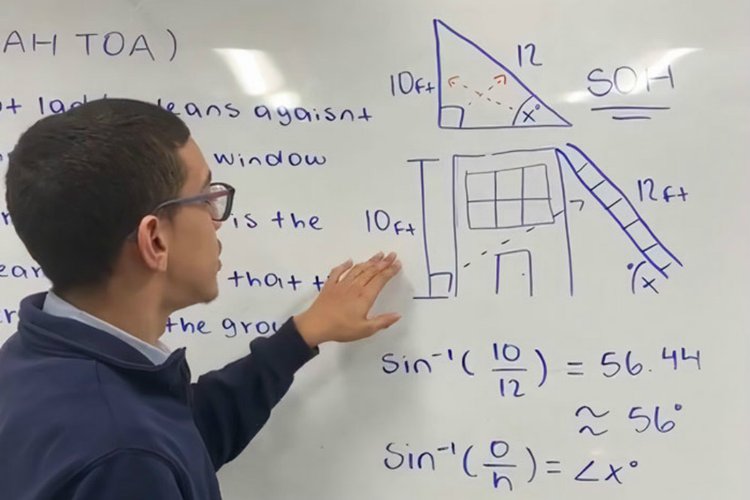 AH TOA)
eans agaisnt
window
is the
that
the
12
10ft
SOH
x°
12ft
10ft
x°
Sin⁻¹ ( 10/12 ) = 56.44
≈ 56°
Sin⁻¹ ( o/h ) = ∠x°